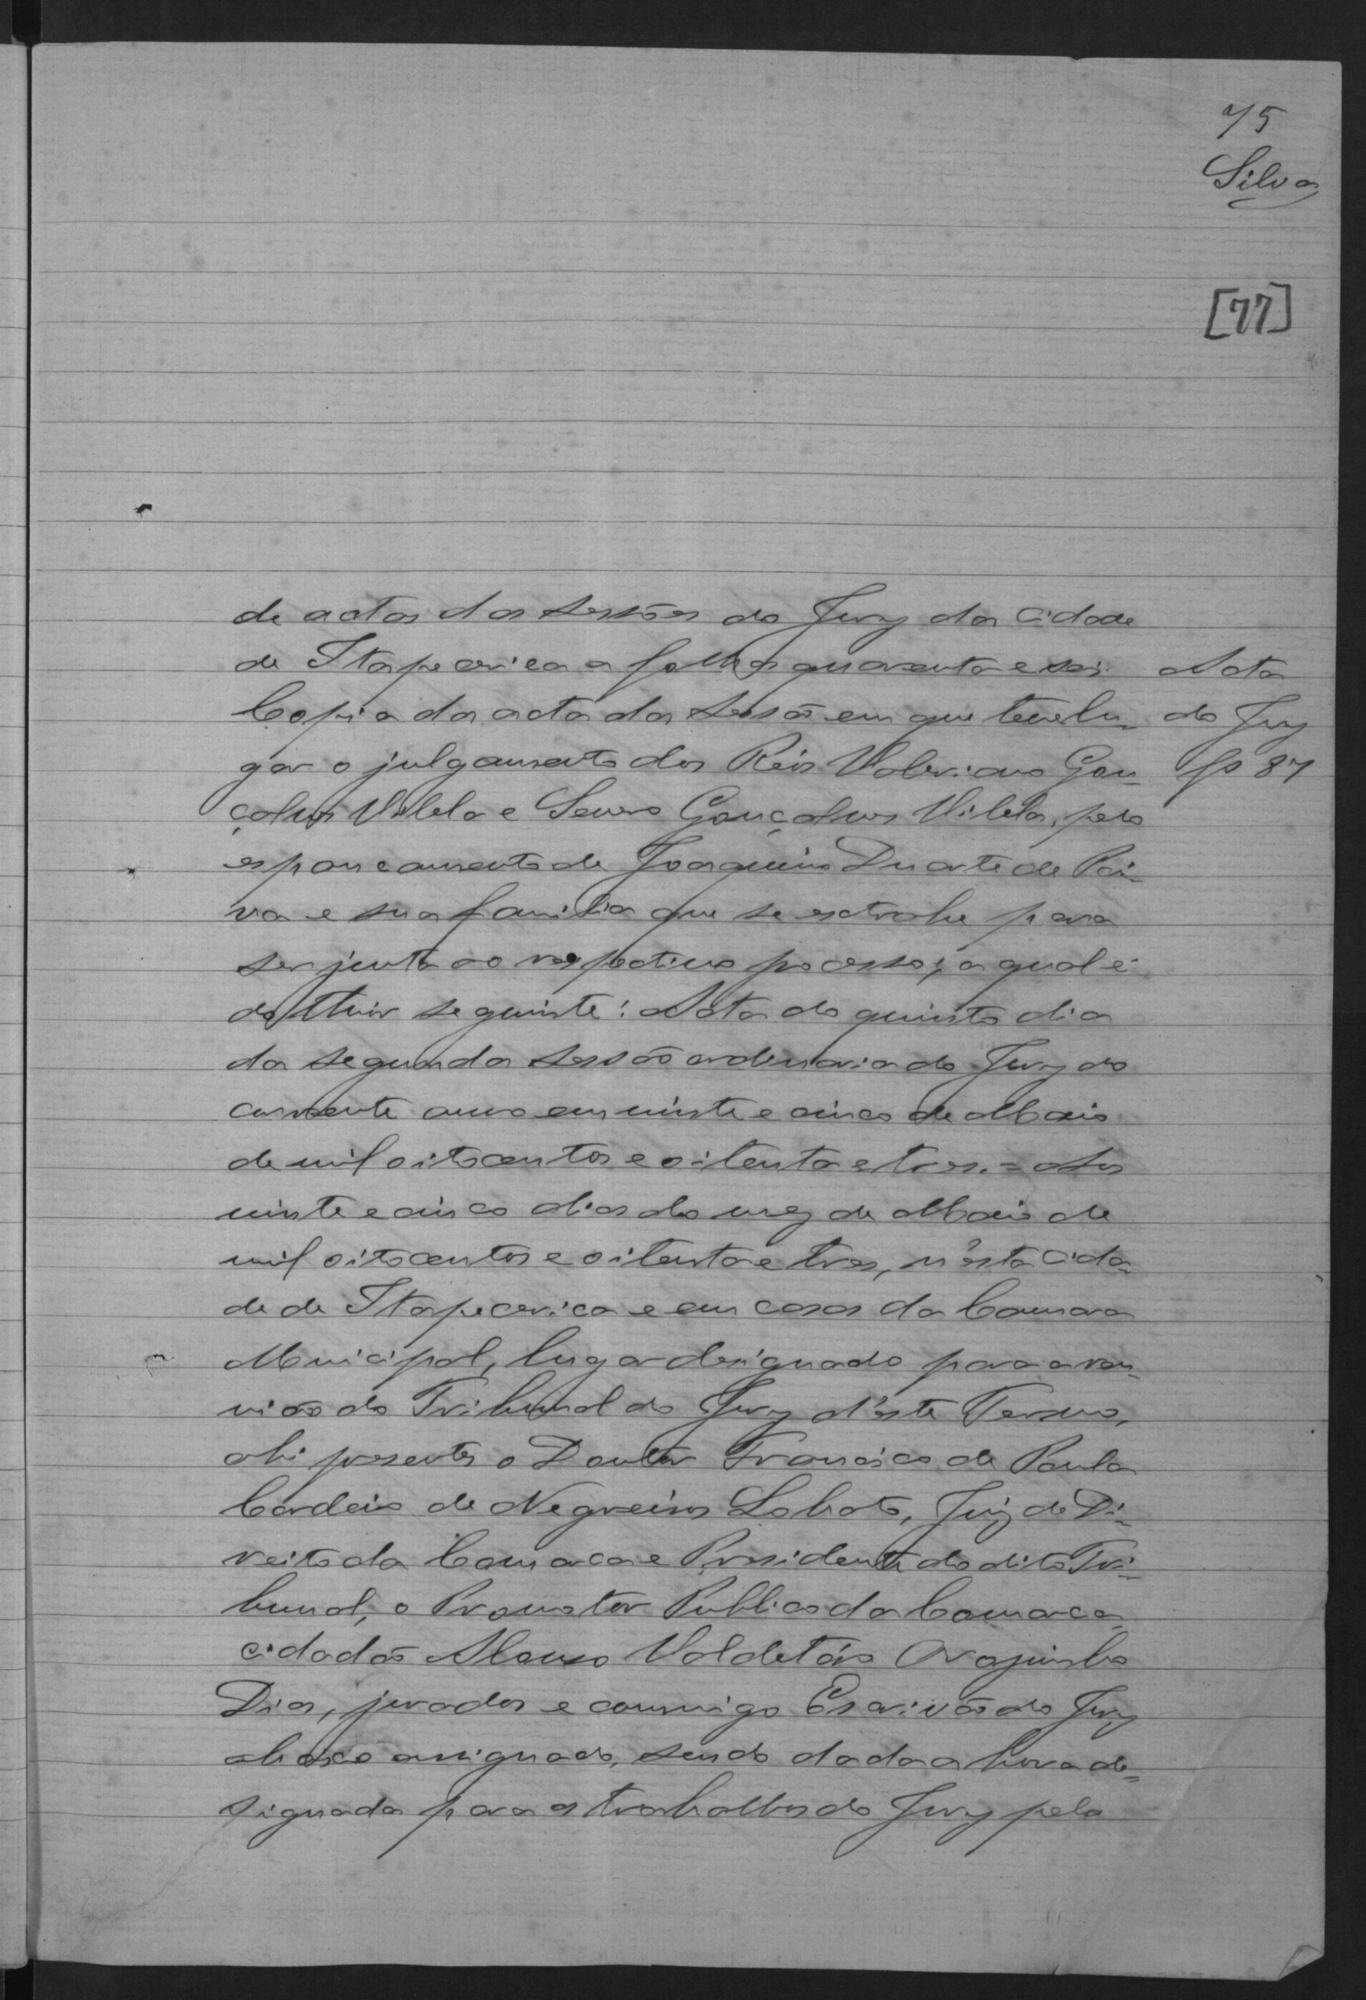 75
Silva
[77]
de actas das sessões do Jury da cidade
de Itapecerica a folhas quarenta e seis
Acta
Copia da acta da sessão em que teve lu-
do Jury
gar o julgamento dos Réos Valeriano Gon-
fs 87
çalves Villela e Severo Gonçalves Villela, pelo
espancamento de Joaquim Duarte de Pai-
va e sua familia que se extrahe para
ser junta ao respectivo processo, a qual é
do theor seguinte: Acta do quinto dia
da segunda sessão ordinaria do Jury do
corrente anno em vinte e cinco de Maio
de mil oitocentos e oitenta e tres. = Aos
vinte e cinco dias do mez de Maio de
mil oitocentos e oitenta e tres, n'esta cida-
de de Itapecerica e em casas da Camara
Municipal, lugar designado para a reu-
nião do Tribunal do Jury d'este Termo,
ahi presentes o Doutor Francisco de Paula
Cordeiro de Negreiros Lobato, Juiz de Di-
reito da Comarca e Presidente do dito Tri-
bunal, o Promotor Publico da Comarca
cidadão Valdetáro
Dias, jurados e commigo Escrivão do Jury
abaixo assignado, sendo dada a hora de-
signada para os trabalhos do Jury pelo